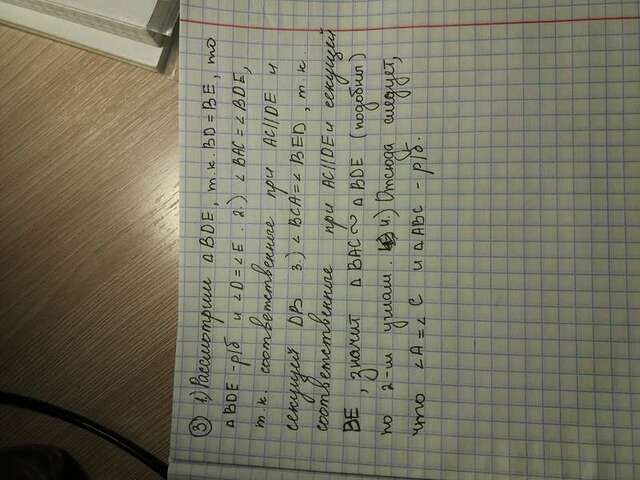 ③ 1.) Рассмотрим △BDE, т.к. BD=BE, то
△BDE - р/б и ∠D=∠E. 2.) ∠BAC=∠BDE,
т.к. соответственные при AC//DE и
секущей DB 3.) ∠BCA=∠BED, т.к.
соответственные при AC//DE и секущей
BE, значит △BAC ∾ △BDE (подобны)
по 2-м углам. 4.) Отсюда следует,
что ∠A=∠C и △ABC - р/б.